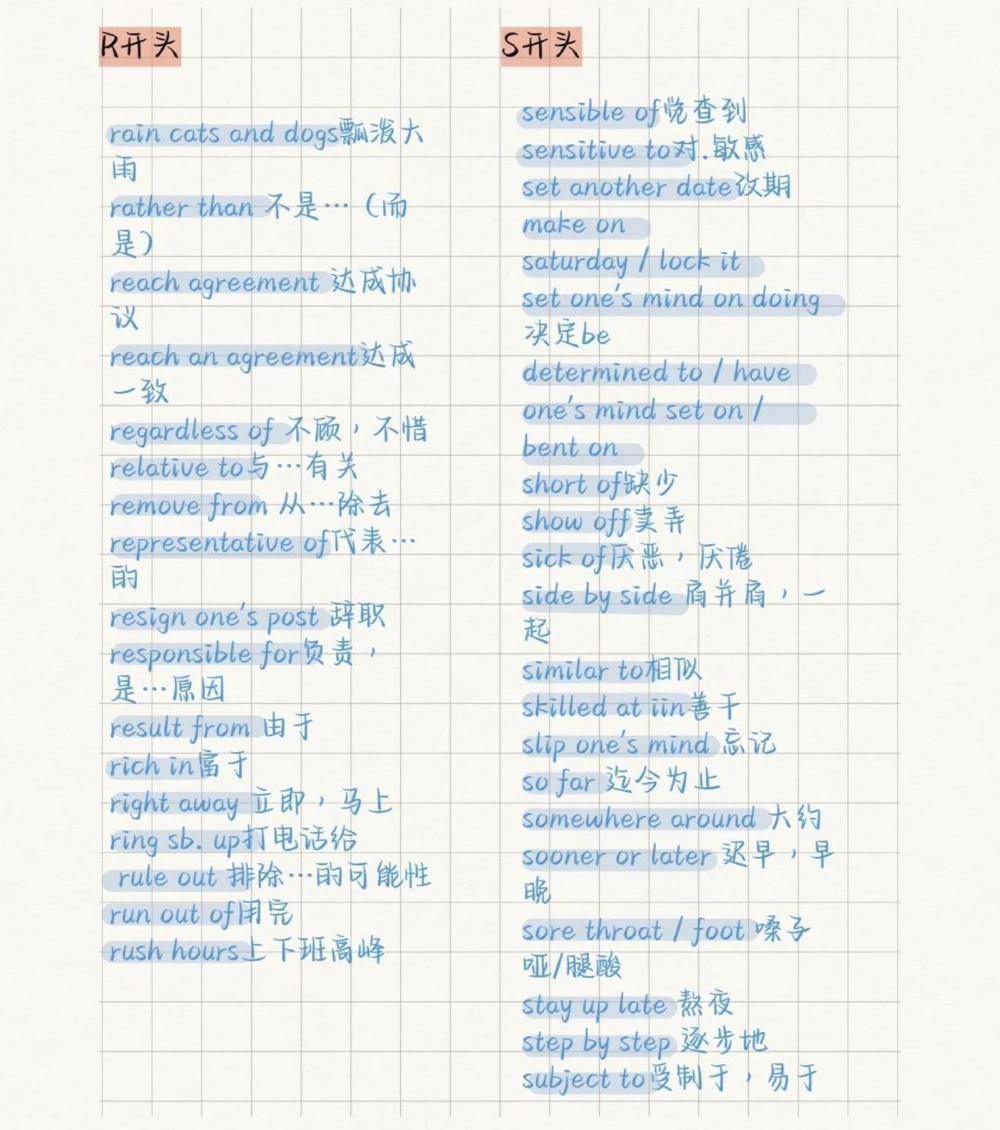 R开头
rain cats and dogs瓢泼大
雨
rather than 不是…（而
是）
reach agreement 达成协
议
reach an agreement达成
一致
regardless of 不顾，不惜
relative to与…有关
remove from 从…除去
representative of代表…
的
resign one's post 辞职
responsible for负责，
是…原因
result from 由于
rich in富于
right away 立即，马上
ring sb. up打电话给
rule out 排除…的可能性
run out of用完
rush hours上下班高峰
S开头
sensible of觉查到
sensitive to对.敏感
set another date改期
make on
saturday / lock it
set one's mind on doing
决定be
determined to / have
one's mind set on /
bent on
short of缺少
show off卖弄
sick of厌恶，厌倦
side by side 肩并肩，一
起
similar to相似
skilled at iin善于
slip one's mind 忘记
so far 迄今为止
somewhere around 大约
sooner or later 迟早，早
晚
sore throat / foot 嗓子
哑/腿酸
stay up late 熬夜
step by step 逐步地
subject to受制于，易于